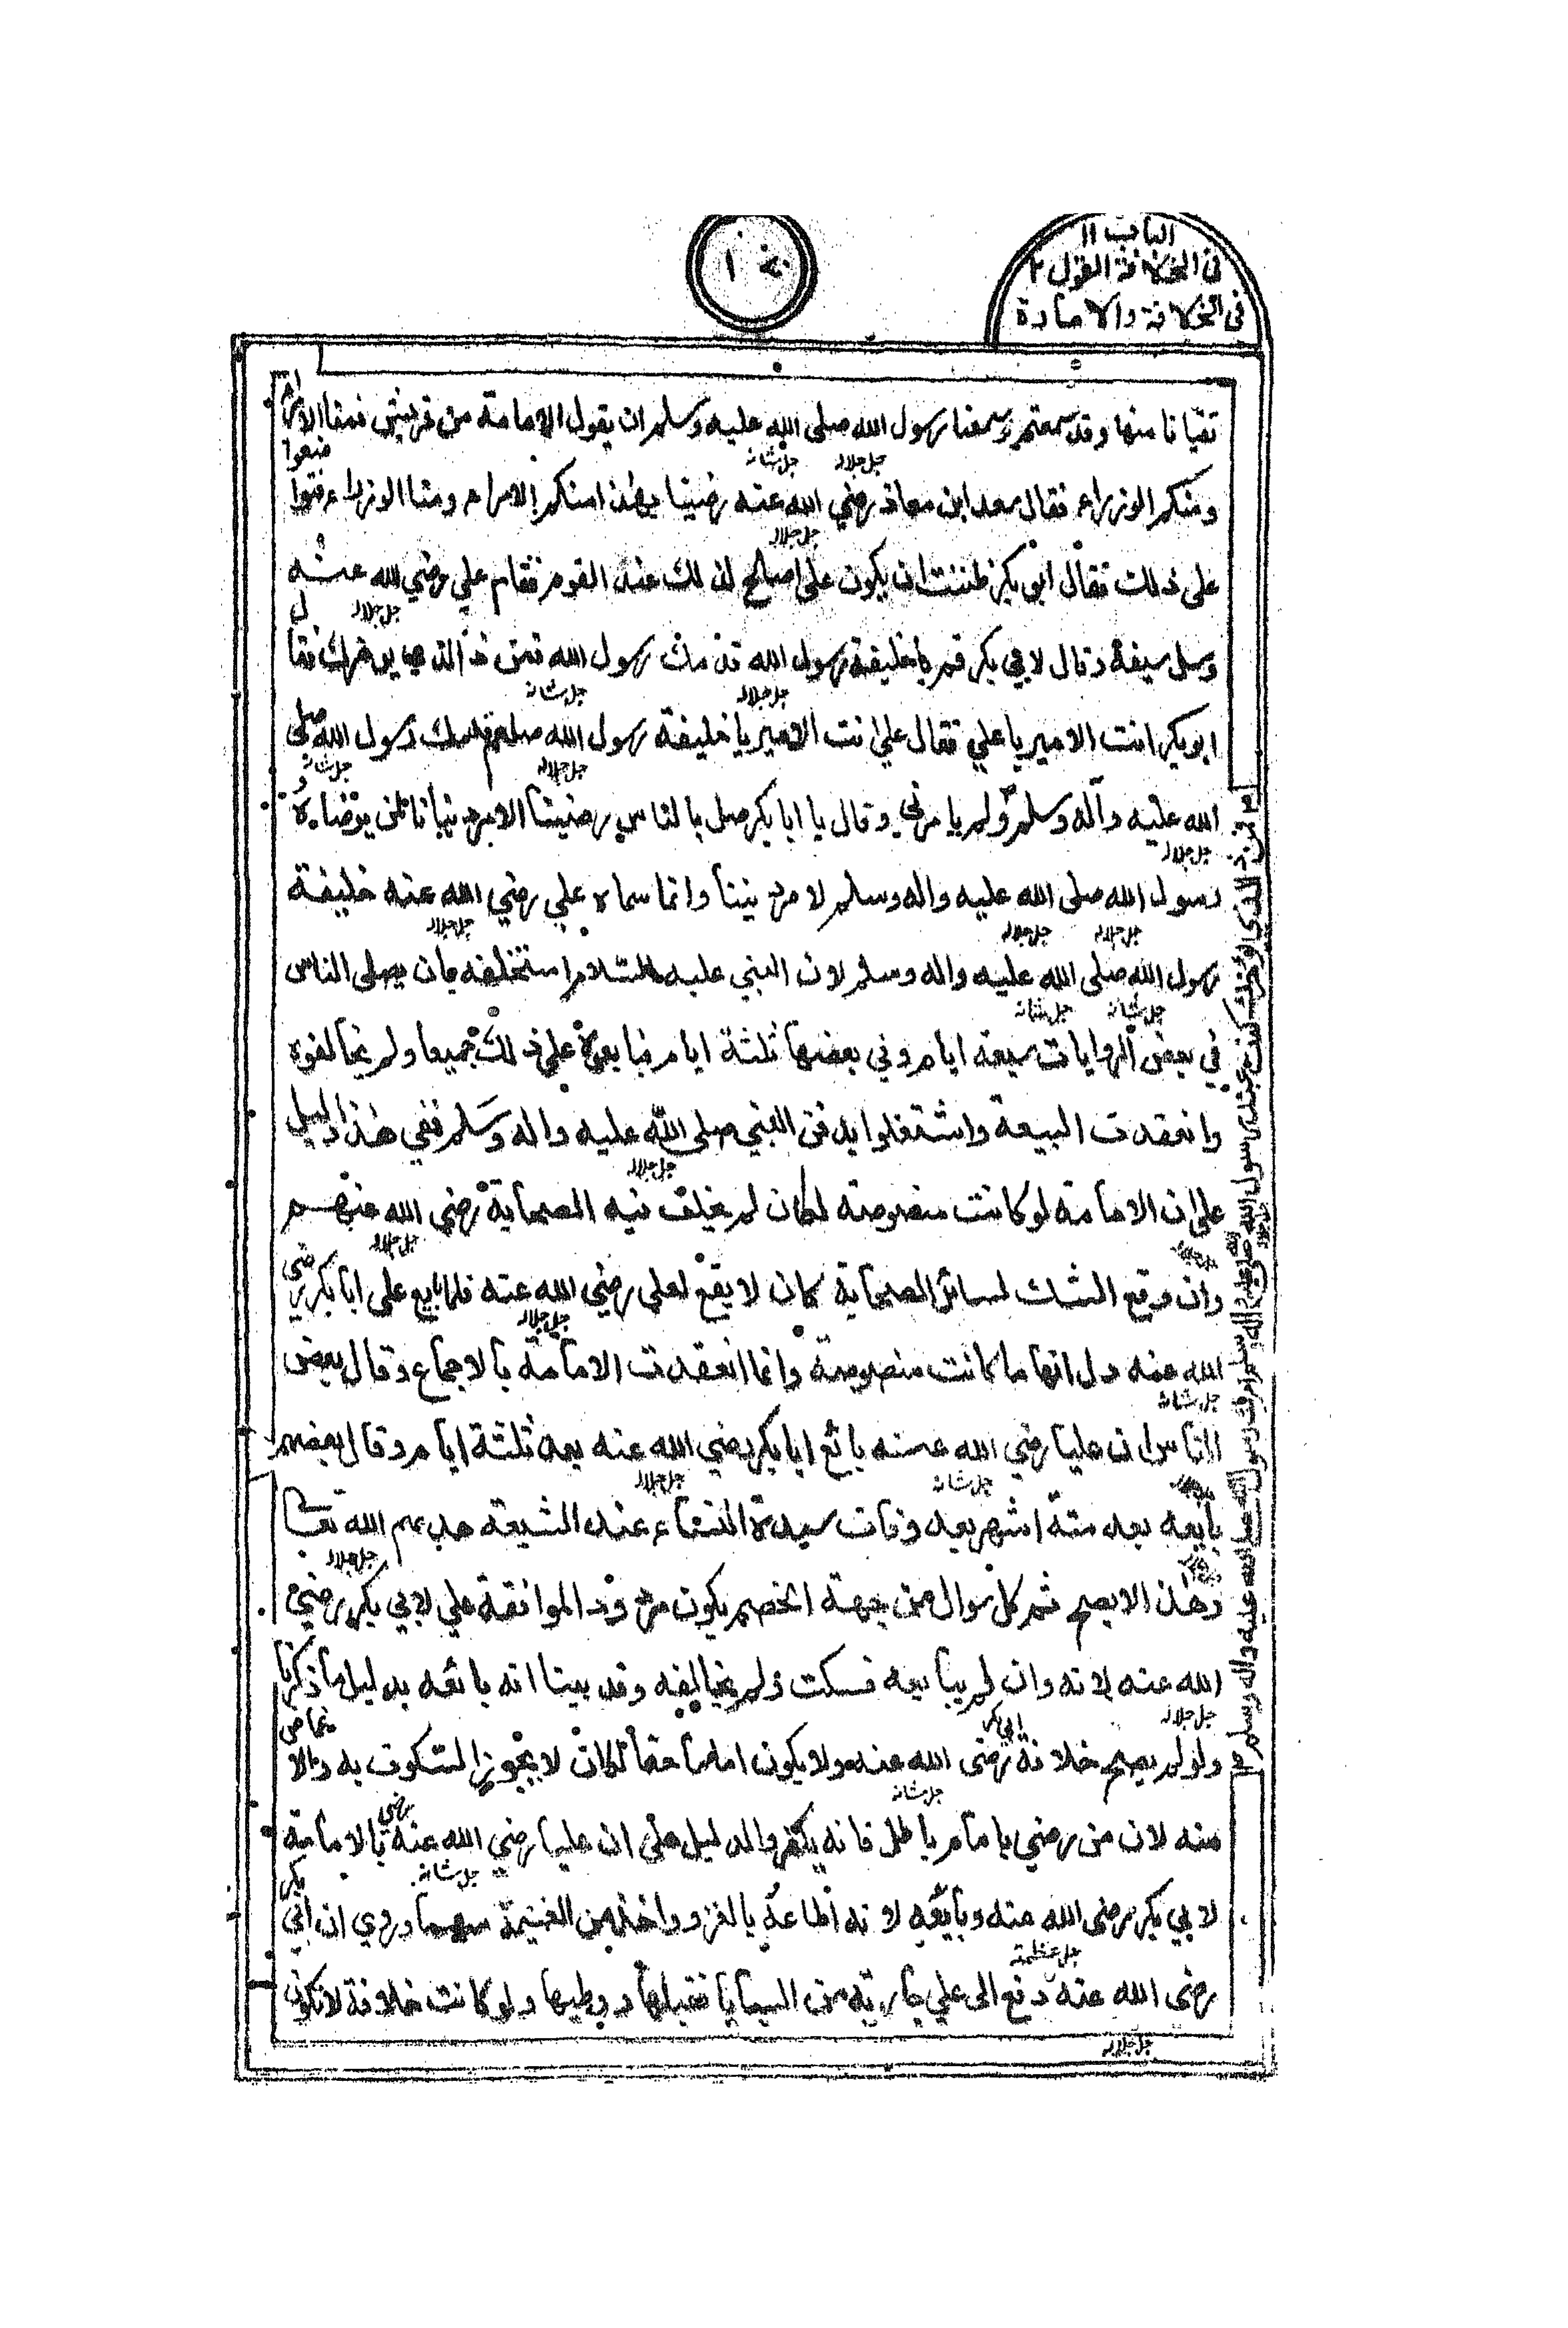 الباب ١١
في الخلافة القول ٢
في الخلافة والامارة
تقيانا منها وقد سمعتم وسمعنا رسول الله صلى الله عليه وسلم ان يقول الامامة من قريش فمنا الامراء
ومنكم الوزراء فقال سعد ابن معاذ رضي الله عنه رضينا بهذا منكم الامراء ومنا الوزراء
على ذلك فقال ابو بكر ظننت ان يكون علي اصلح لذلك عند القوم فقام علي رضي الله عنه
وسل سيفه وقال لابي بكر قم يا خليفة رسول الله قدمك رسول الله فمن ذا الذي يؤخرك فقال
ابو بكر انت الامير يا علي فقال علي انت الامير يا خليفة رسول الله صلعم قدمك رسول الله صلى
الله عليه وآله وسلم ولم يامرني وقال يا ابا بكر صل بالناس رضينا لامر دنيانا من رضاه
رسول الله صلى الله عليه واله وسلم لامر ديننا وانما سماه علي رضي الله عنه خليفة
رسول الله صلى الله عليه واله وسلم لان النبي عليه السلام استخلفه بان يصلي الناس
في بعض الروايات سبعة ايام وفي بعضها ثلثة ايام فبايعوه على ذلك جميعا ولم يخالفوه
وانعقدت البيعة واشتغلوا بدفن النبي صلى الله عليه واله وسلم ففي هذا دليل
على ان الامامة لو كانت منصوصة لكان لم يختلف فيه الصحابة رضي الله عنهم
وان وقع الشك لسائر الصحابة كان لا يقع لعلي رضي الله عنه فلما بايع علي ابا بكر رضي
الله عنه دل انها ما كانت منصوصة وانما انعقدت الامامة بالاجماع وقال بعض
الناس ان عليا رضي الله عنه بائع ابا بكر رضي الله عنه بعد ثلثة ايام وقال بعضهم
بايعه بعد ستة اشهر بعد وفات سيدة النساء عند الشيعة هداهم الله تعا
وهذا لا يصح ثم كل سوال من جهة الخصم يكون من وقد الموافقة علي لابي بكر رضي
الله عنه لانه وان لم يبايعه فسكت ولم يخالفه وقد بينا انه بائعه بدليل ما ذكرنا
ولو لم يصح خلافة ابي بكر رضي الله عنه ولا يكون اماما حقا لكان لا يجوز السكوت به والا
منه لان من رضي بامام باطل فانه يكفر والدليل على ان عليا رضي الله عنه رضي بالامامة
لابي بكر رضي الله عنه وبايعه لانه اطاعه بالغزو واخذ من الغنيمة سهما وروي ان ابي بكر
رضي الله عنه دفع الى علي جارية من السبايا فقبلها ووطيها ولو كانت خلافة لا تكون